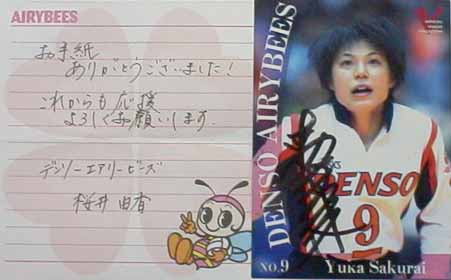 AIRYBEES
お手紙
ありがとうございました!
これからも応援
よろしくお願いします.
デンソーエアリービーズ
桜井由香
DENSO AIRYBEES
DENSO
9
NO.9
Yuka Sakurai